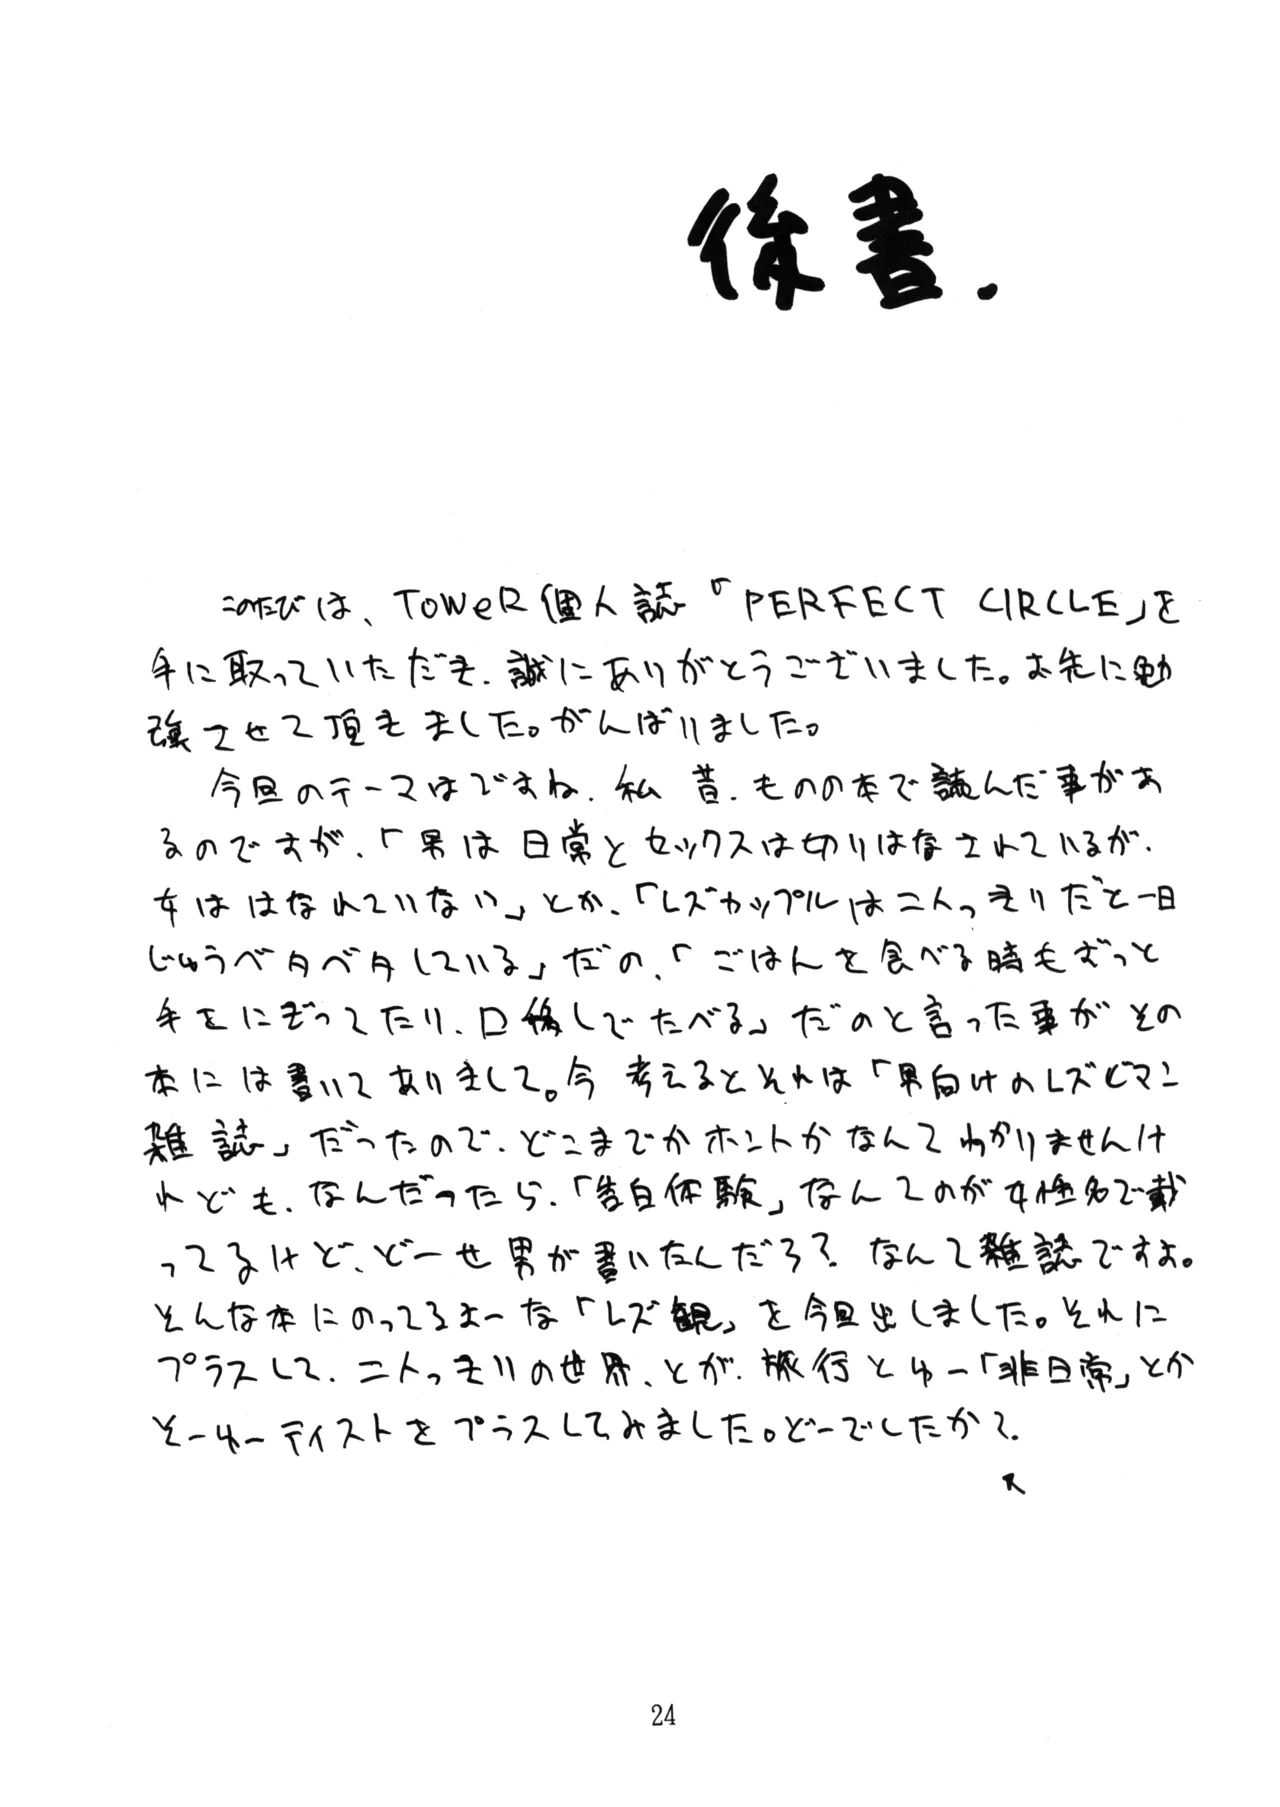 後書.
このたびは、ToWeR個人誌「PERFECT CIRCLE」を
手に取っていただき、誠にありがとうございました。お先に勉
強させて頂きました。がんばりました。
今回のテーマはですね、私 昔、ものの本で読んだ事があ
るのですが、「男は日常とセックスは切りはなされているが、
女ははなれていない」とか、「レズカップルは二人っきりだと一日
じゅうベタベタしている」だの、「ごはんを食べる時もずっと
手をにぎってたり、口移しでたべる」だのと言った事がその
本には書いてありまして。今 考えるとそれは「男向けのレズビアン
雑誌」だったので、どこまでがホントかなんてわかりませんけ
れども、なんだったら、「告白体験」なんてのが女性名で載
ってるけど、どーせ男が書いたんだろ?なんて雑誌ですよ。
そんな本にのってるよーな「レズ観」を今回出しました。それに
プラスして、二人っきりの世界、とか、旅行とゆー「非日常」とか
そーゆーテイストをプラスしてみました。どーでしたか?
24